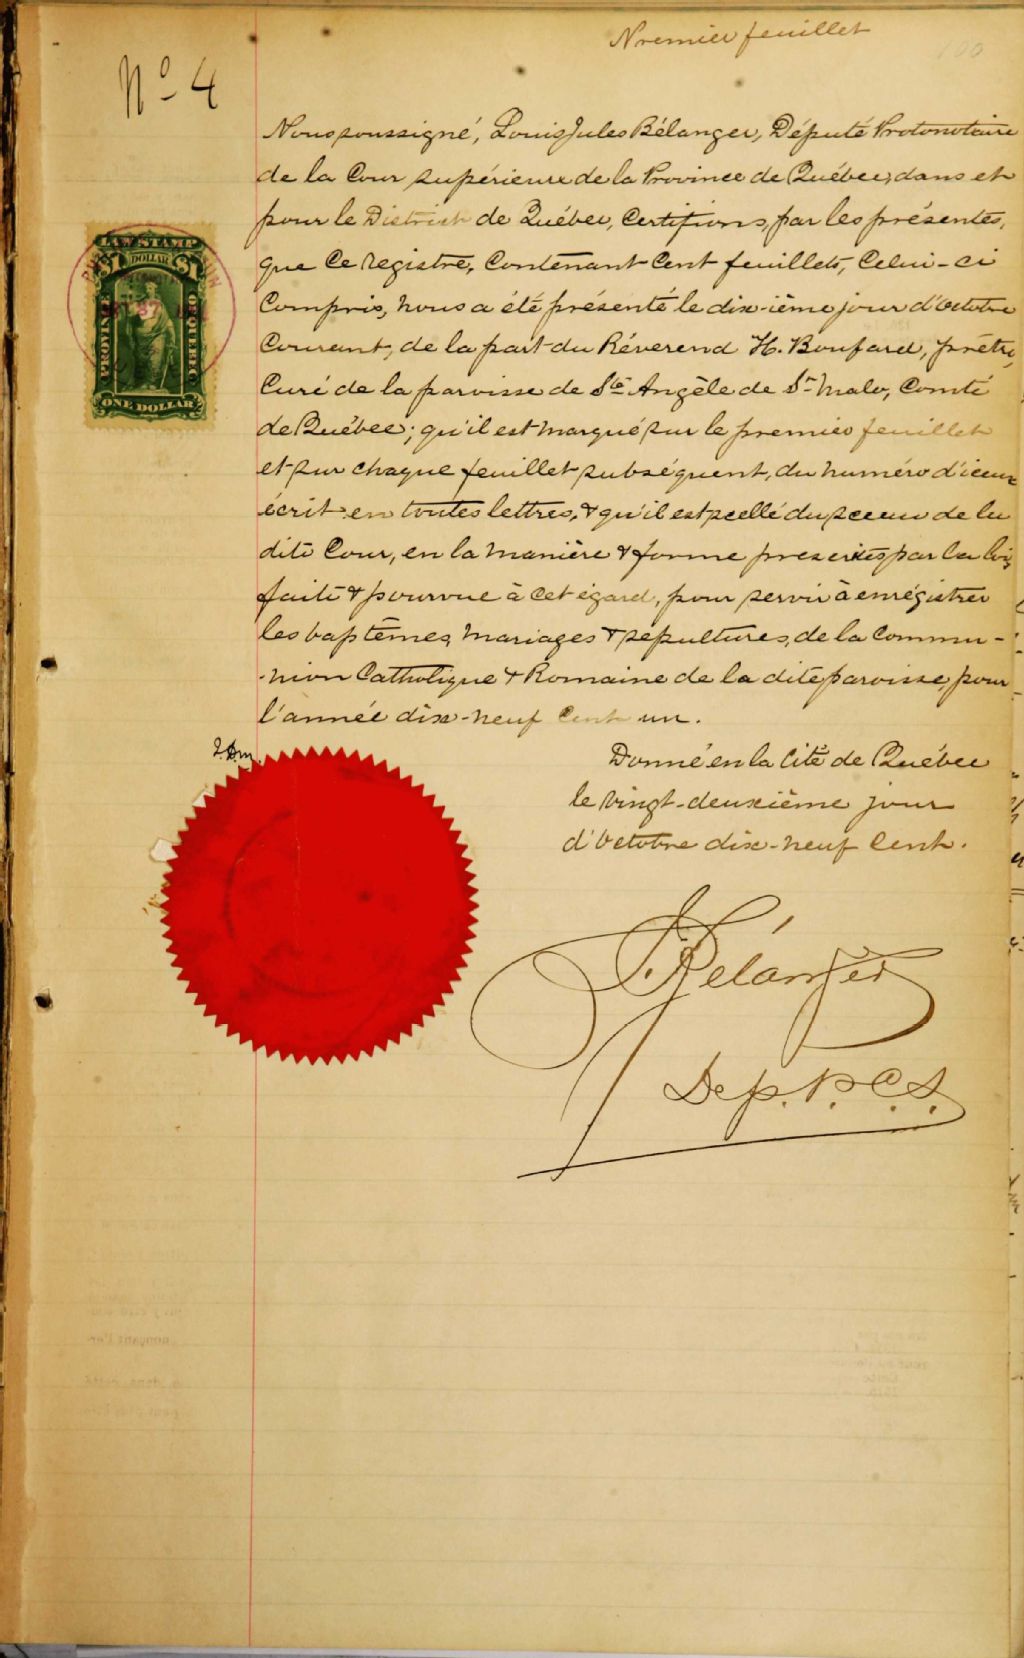 Premier feuillet
100
No 4
Nous soussigné, Louis Jules Bélanger, Député Protonotaire
de la Cour supérieure de la Province de Québec, dans et
pour le District de Québec, Certifions, par les présentes,
que Ce registre, Contenant Cent feuillets, Celui-ci
Compris, nous a été présenté le dix-ième jour d'Octobre
Courant, de la part du Réverend H. Boufard, prêtre,
Curé de la paroisse de Ste Angèle de St Malo, Comté
de Québec; qu'il est marqué sur le premier feuillet
et sur chaque feuillet subséquent, du numéro d'iceux
écrit en toutes lettres, & qu'il est scellé du sceau de la
dite Cour, en la manière & forme prescrites par la loi,
faite & pourvue à cet égard, pour servir à enrégistrer
les baptêmes, mariages & sepultures, de la Commu-
-nion Catholique & Romaine de la dite paroisse, pour
l'année dix-neuf Cent un.
LAW STAMP
$1 DOLLAR $1
PROVINCE
QUEBEC
ONE DOLLAR
Donné en la Cité de Québec
le vingt-deuxième jour
d'Octobre dix-neuf Cent.
J. Bélanger
Dep. P. C. S.